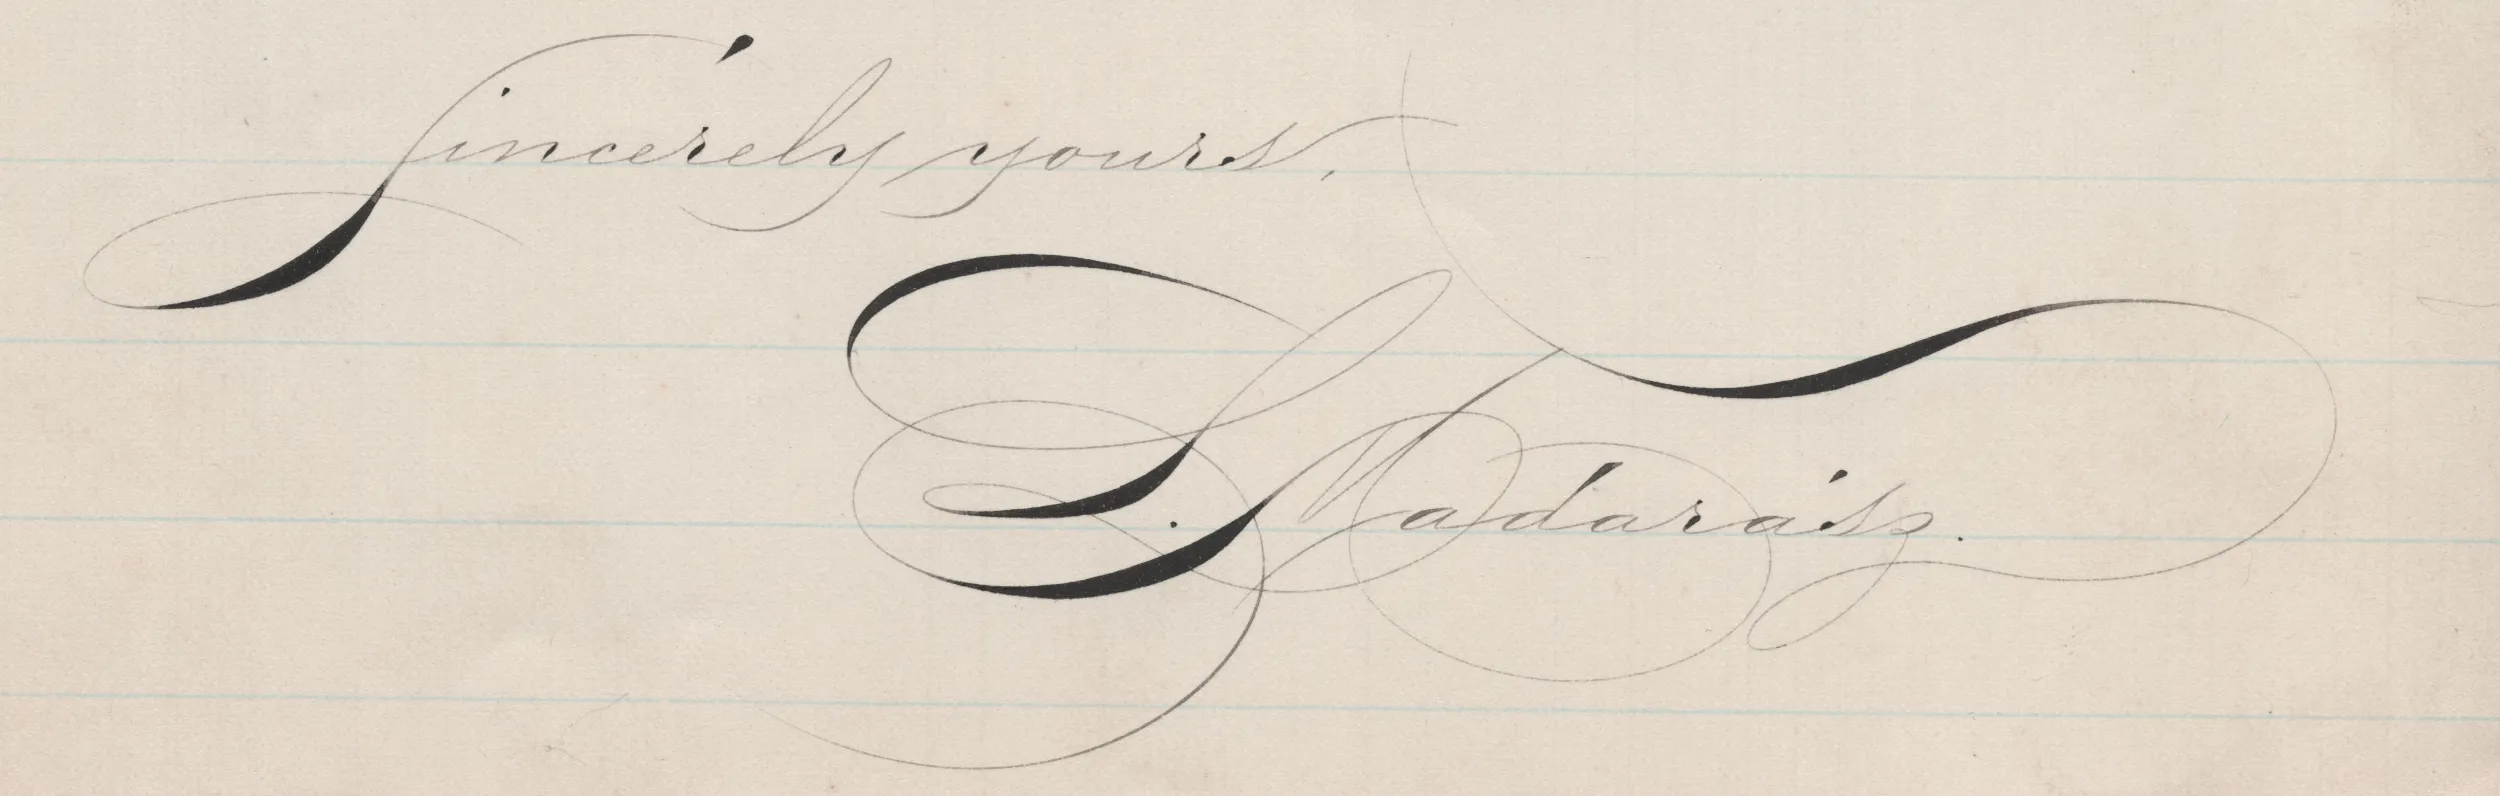 Sincerely yours,
L. Madarász.